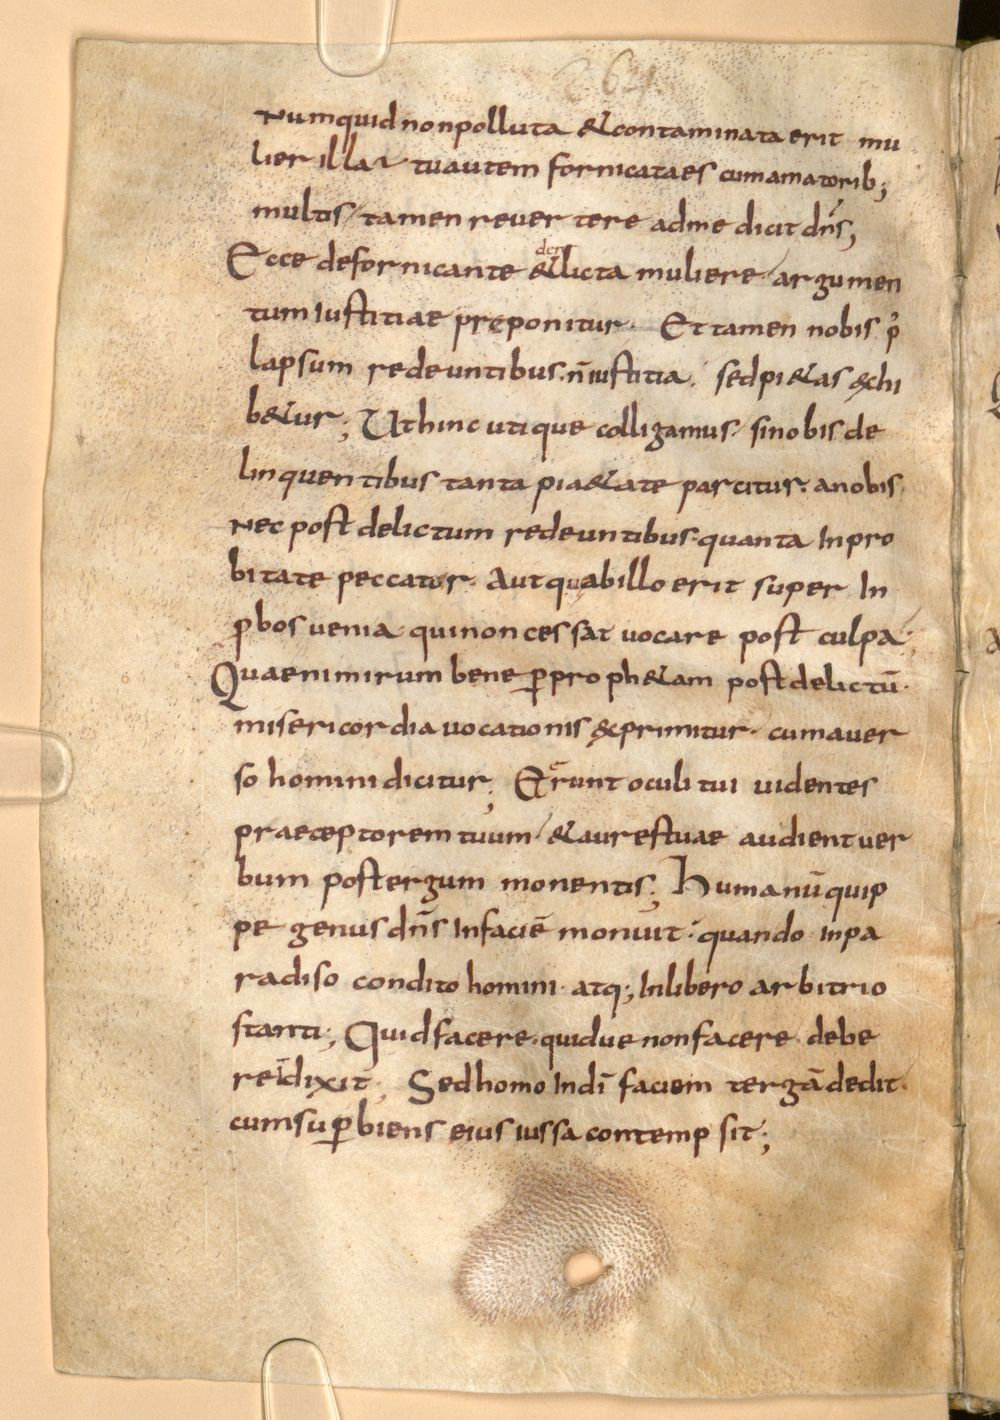 Numquid non polluta & contaminata erit mu
lier illa? tu autem fornicata es cum amatorib;
multis / tamen revertere ad me dicit dn̄s;
Ecce de fornicante & der licta muliere / argumen
tum iustitiae preponitur. Et tamen nobis p̉
lapsum redeuntibus. n̄ iustitia. sed pi&as exhi
b&ur; Ut hinc utique colligamus / si nobis de
linquentibus tanta pia&ate parcitur. a nobis
nec post delictum redeuntibus. quanta inpro
bitate peccatur. Aut quę ab illo erit super in
ꝓbos venia qui non cessat vocare post culpa.
Quae nimirum bene ꝑ proph&am post delictū.
misericordia vocationis exprimitur. cum aver
so homini dicitur; Et erunt oculi tui videntes
praeceptorem tuum / & aures tuae audient ver
bum post tergum monentis; Humanū quip
pe genus dn̄s in faciē monuit. quando in pa
radiso condito homini. atq; in libero arbitrio
stanti; Quid facere. quidve non facere debe
ret dixit; Sed homo in dī faciem tergā dedit.
cum suꝑbiens eius iussa contempsit;